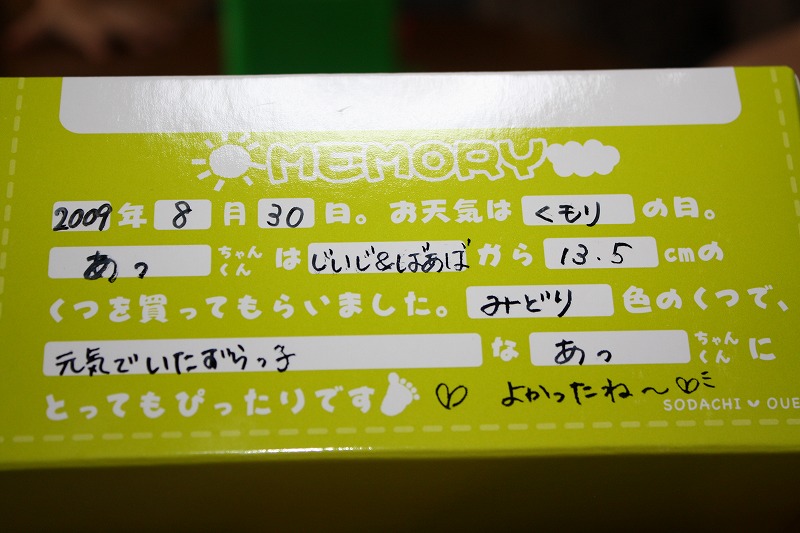 MEMORY
2009年8月30日。お天気はくもりの日。
あっちゃんくんはじいじ&ばあばから13.5cmの
くつを買ってもらいました。みどり色のくつで、
元気でいたずらっ子なあっちゃんくんに
とってもぴったりです よかったね〜
SODACHI OUE